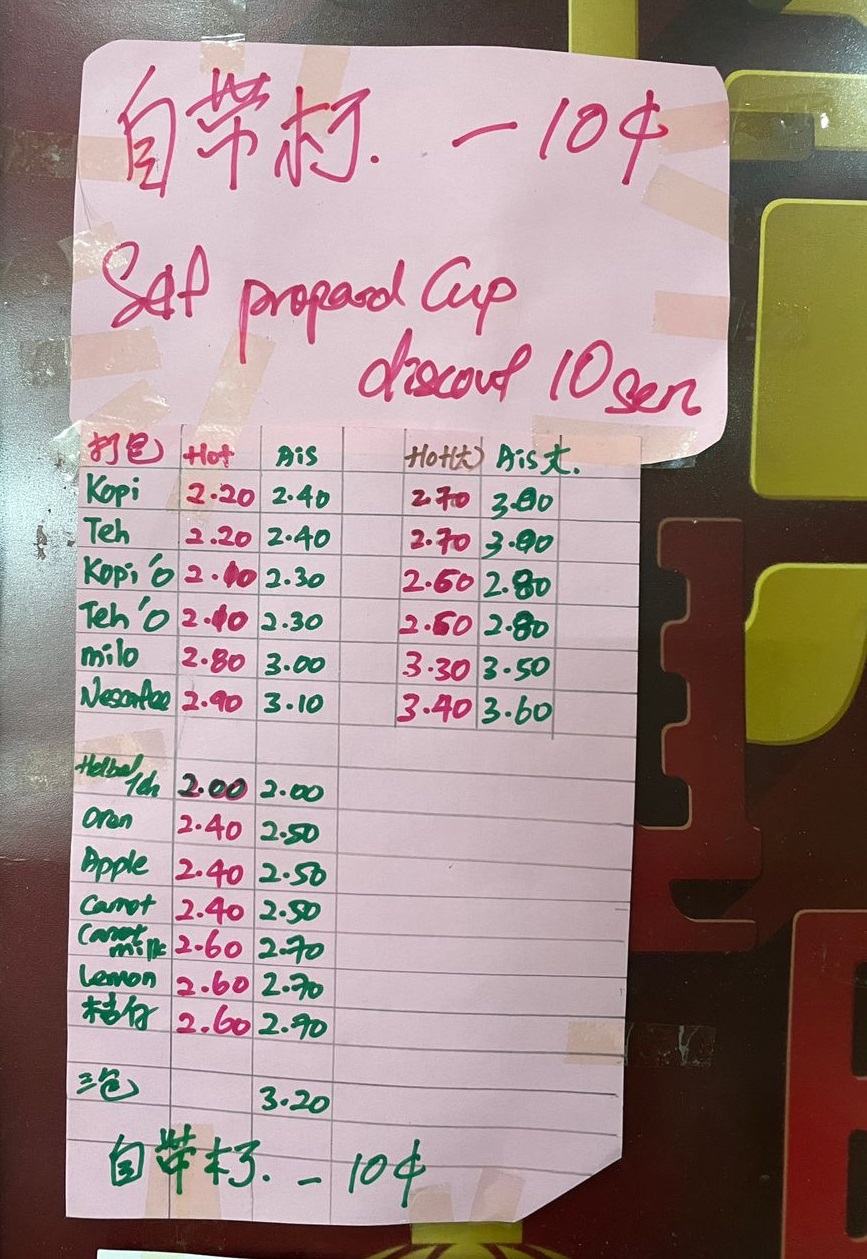 自带杯. -10¢
Self prepard Cup
discout 10 sen
打包 Hot Ais Hot(大) Ais大.
Kopi 2.20 2.40 2.70 3.00
Teh 2.20 2.40 2.70 3.00
Kopi'o 2.10 2.30 2.60 2.80
Teh'o 2.10 2.30 2.60 2.80
milo 2.80 3.00 3.30 3.50
2.90 3.10 3.40 3.60
2.00 2.00
oren 2.40 2.50
Apple 2.40 2.50
Carrot 2.40 2.50
Carrot milk 2.60 2.70
Lemon 2.60 2.70
桔仔 2.60 2.70
三色 3.20
自带杯. -10¢